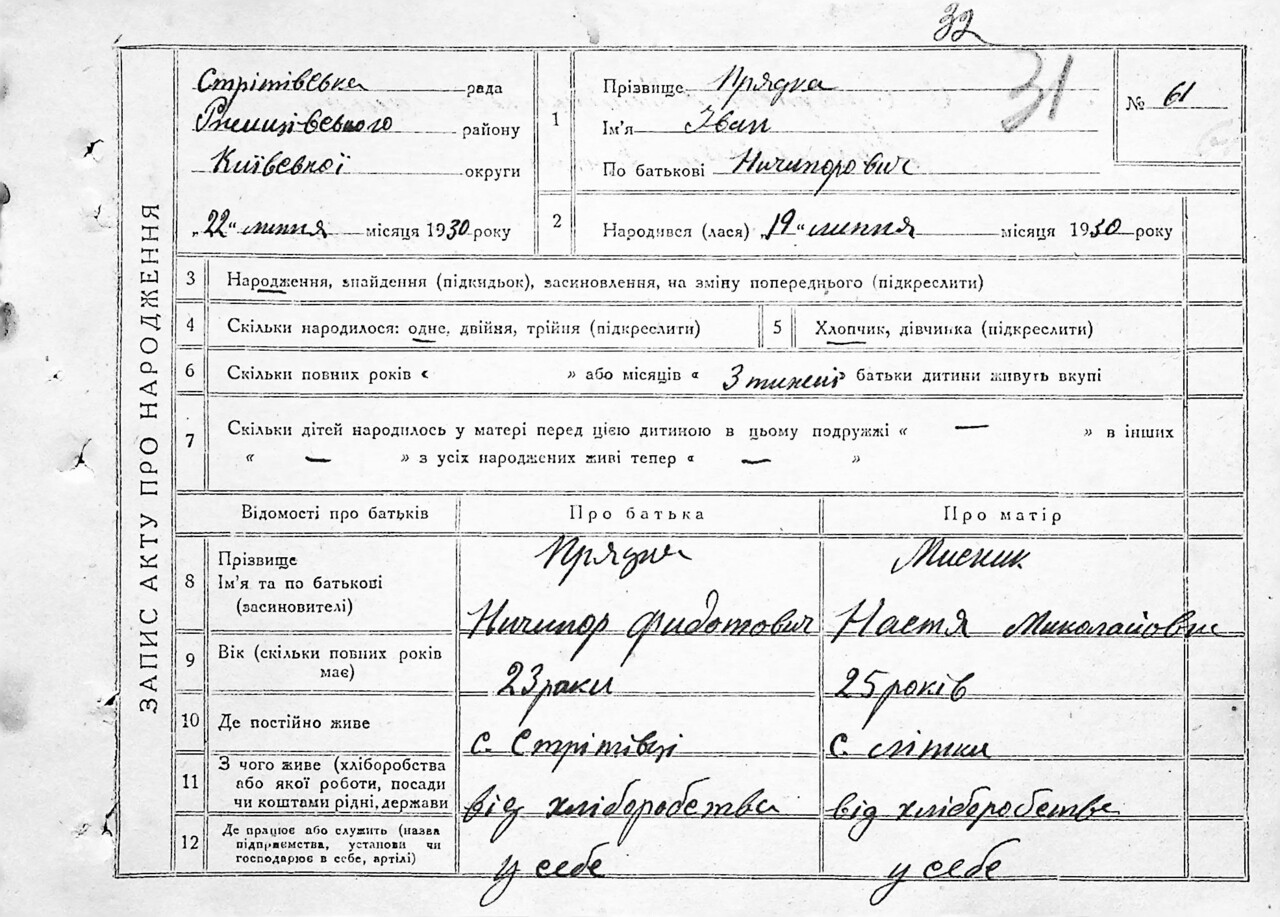 32
31
ЗАПИС АКТУ ПРО НАРОДЖЕННЯ
Стрітівська рада
району
Київської округи
„22" липня місяця 1930 року
1 Прізвище Прядка
Ім'я Іван
По батькові Ничипорович
№ 61
2 Народився (лася) „19" липня місяця 1930 року
3 Народження, знайдення (підкидьок), засиновлення, на зміну попереднього (підкреслити)
4 Скільки народилося: одне, двійня, трійня (підкреслити)
5 Хлопчик, дівчинка (підкреслити)
6 Скільки повних років « » або місяців « 3 тижні » батьки дитини живуть вкупі
7 Скільки дітей народилось у матері перед цією дитиною в цьому подружжі « — » в інших
« — » з усіх народжених живі тепер « — »
Відомості про батьків Про батька Про матір
8 Прізвище Прядка Мисник
Ім'я та по батькові
(засиновителі) Ничипор Фидотович Настя Миколайовна
9 Вік (скільки повних років
має) 23 роки 25 років
10 Де постійно живе с. Стрітівці с. літки
11 З чого живе (хліборобства
або якої роботи, посади
чи коштами рідні, держави від хліборобства від хліборобства
12 Де працює або служить (назва
підприємства, установи чи
господарює в себе, артілі) у себе у себе